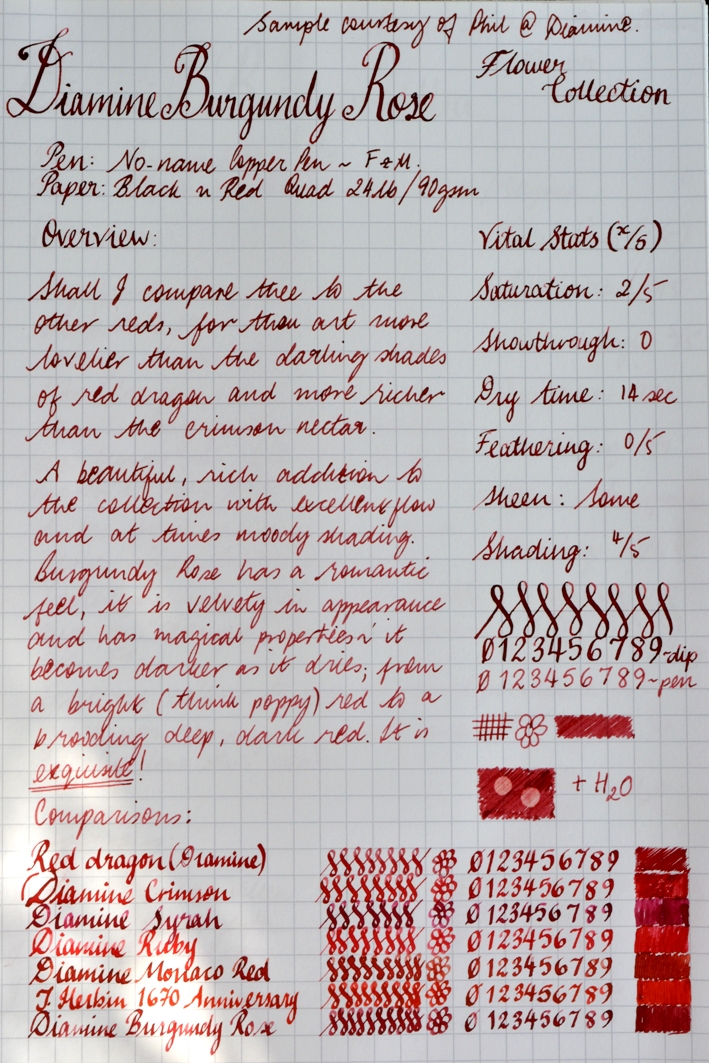 Sample courtesy of Phil @ Diamine.
Diamine Burgundy Rose
Flower
Collection
Pen: No-name Copper Pen ~ F & M.
Paper: Black n Red Quad 24lb/90gsm
Overview:
Shall I compare thee to the
other reds, for thou art more
lovelier than the darling shades
of red dragon and more richer
than the crimson nectar.
A beautiful, rich addition to
the collection with excellent flow
and at times moody shading.
Burgundy Rose has a romantic
feel, it is velvety in appearance
and has magical properties; it
becomes darker as it dries; from
a bright (think poppy) red to a
brooding deep, dark red. It is
exquisite!
Vital Stats (x/5)
Saturation: 2/5
Showthrough: 0
Dry time: 14 sec
Feathering: 0/5
Sheen: Some
Shading: 4/5
0123456789~dip
0123456789~pen
+ H2O
Comparisons:
Red dragon (Diamine) 0123456789
Diamine Crimson 0123456789
Diamine Syrah 0123456789
Diamine Ruby 0123456789
Diamine Monaco Red 0123456789
J. Herbin 1670 Anniversary 0123456789
Diamine Burgundy Rose 0123456789